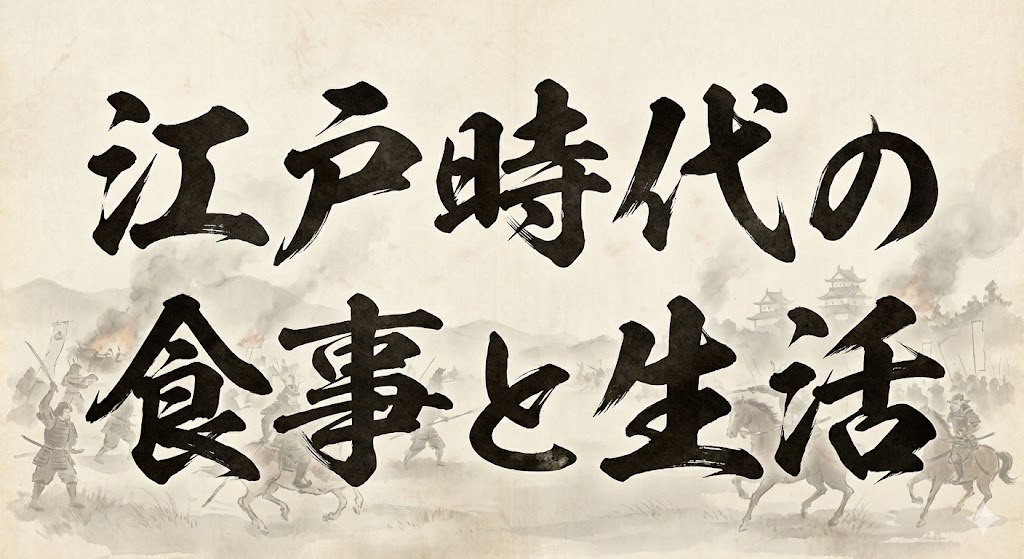 江戸時代の
食事と生活